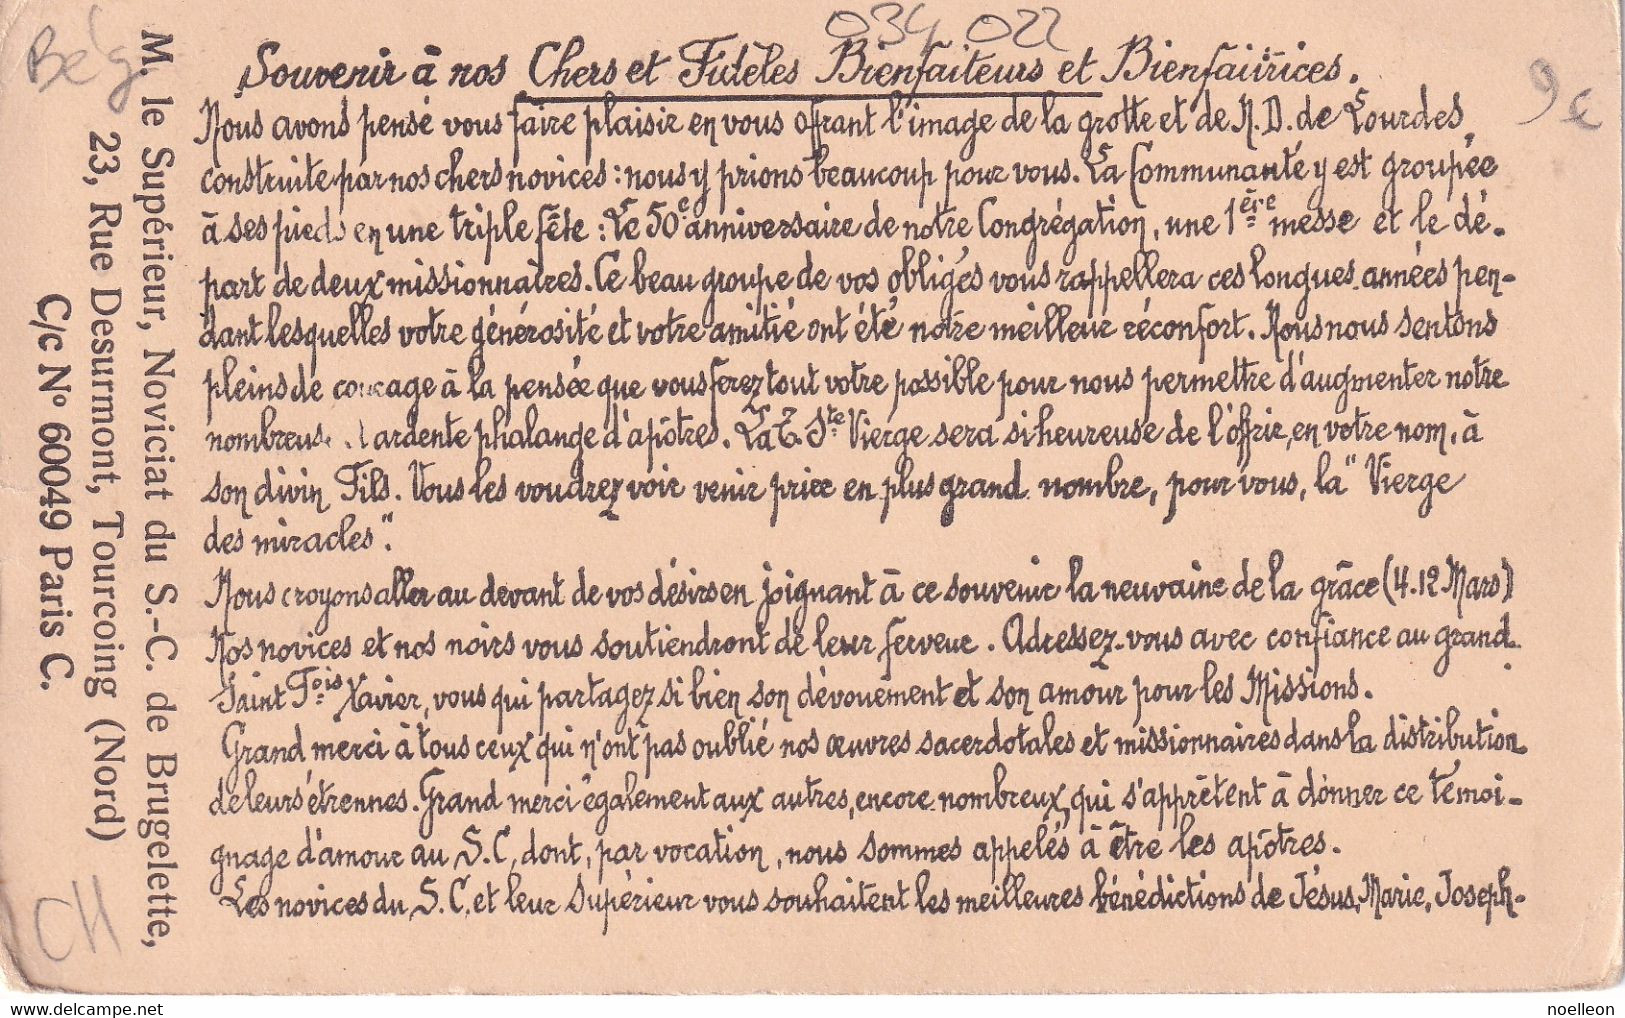 034 022
Bélg
9 €
Souvenir à nos Chers et Fidèles Bienfaiteurs et Bienfaitrices.
Nous avons pensé vous faire plaisir en vous offrant l'image de la grotte et de N.D. de Lourdes,
construite par nos chers novices : nous y prions beaucoup pour vous. La Communauté y est groupée
à ses pieds en une triple fête : Le 50e anniversaire de notre Congrégation, une 1ère messe et le dé-
part de deux missionnaires. Ce beau groupe de vos obligés vous rappellera ces longues années pen-
dant lesquelles votre générosité et votre amitié ont été notre meilleur réconfort. Nous nous sentons
pleins de courage à la pensée que vous ferez tout votre possible pour nous permettre d'augmenter notre
nombreuse ardente phalange d'apôtres. La T. Ste Vierge sera si heureuse de l'offrir, en votre nom, à
son divin Fils. Vous les voudrez voir venir prier en plus grand nombre, pour vous, la "Vierge
des miracles".
Nous croyons aller au devant de vos désirs en joignant à ce souvenir la neuvaine de la grâce (4.12 Mars)
Nos novices et nos noirs vous soutiendront de leur ferveur. Adressez-vous avec confiance au grand
Saint Fois Xavier, vous qui partagez si bien son dévouement et son amour pour les Missions.
Grand merci à tous ceux qui n'ont pas oublié nos œuvres sacerdotales et missionnaires dans la distribution
de leurs étrennes. Grand merci également aux autres, encore nombreux, qui s'apprêtent à donner ce témoi-
gnage d'amour au S.C, dont, par vocation, nous sommes appelés à être les apôtres.
Les novices du S.C. et leur Supérieur vous souhaitent les meilleures bénédictions de Jésus, Marie, Joseph-
M. le Supérieur, Noviciat du S.-C. de Brugelette,
23, Rue Desurmont, Tourcoing (Nord)
C/c N° 60049 Paris C.
CH
delcampe.net
noelleon